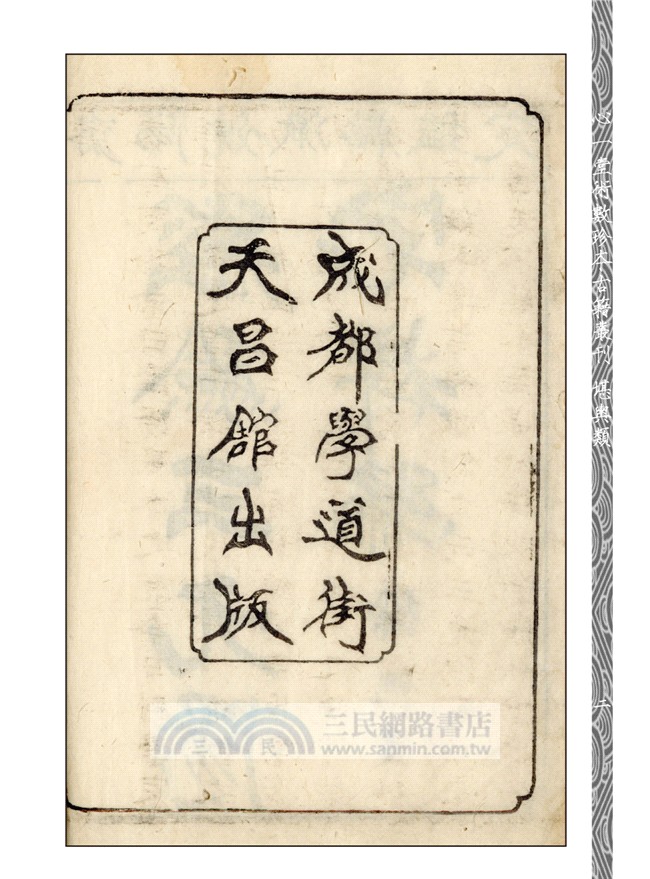 成都學道街
天昌舘出版
心一堂術數珍本古籍叢刊 堪輿類
二
三民網路書店
三 民
www.sanmin.com.tw